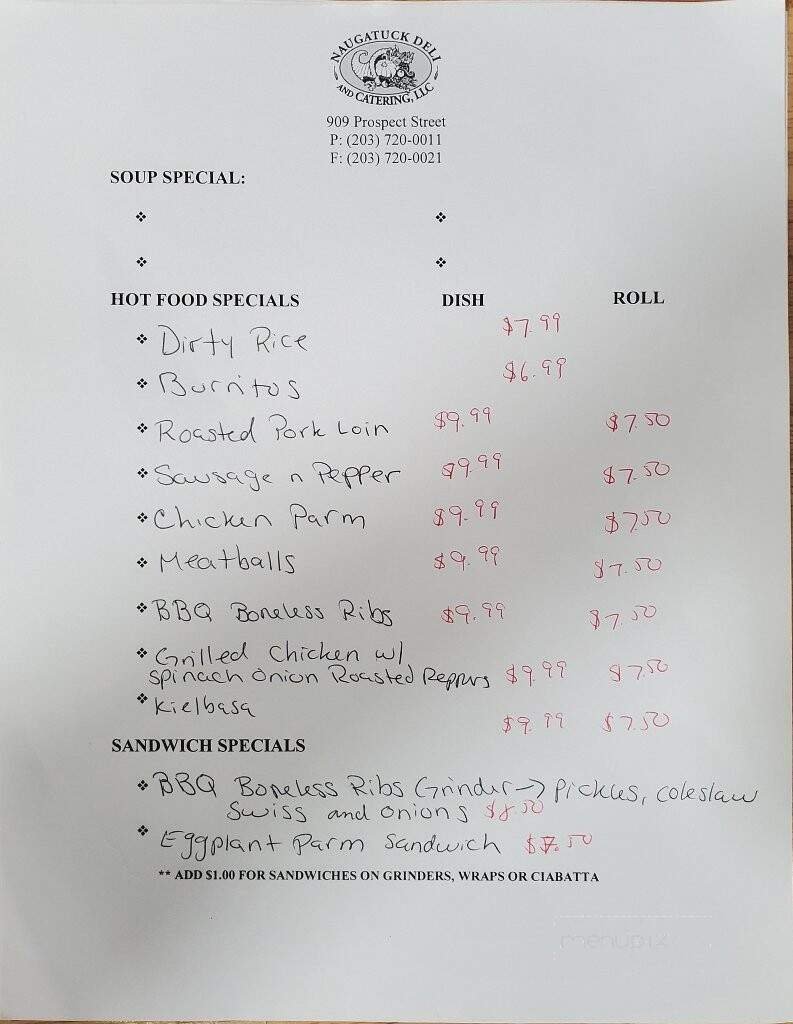 NAUGATUCK DELI
AND CATERING, LLC
909 Prospect Street
P: (203) 720-0011
F: (203) 720-0021
SOUP SPECIAL:
HOT FOOD SPECIALS DISH ROLL
Dirty Rice $7.99
Burritos $6.99
Roasted Pork Loin $9.99 $7.50
Sausage n Pepper $9.99 $7.50
Chicken Parm $9.99 $7.50
Meatballs $9.99 $7.50
BBQ Boneless Ribs $9.99 $7.50
Grilled Chicken w/
spinach onion Roasted Peppers $9.99 $7.50
Kielbasa $9.99 $7.50
SANDWICH SPECIALS
BBQ Boneless Ribs Grinder → pickles, coleslaw
swiss and onions $8.50
Eggplant Parm Sandwich $7.50
** ADD $1.00 FOR SANDWICHES ON GRINDERS, WRAPS OR CIABATTA
menupix